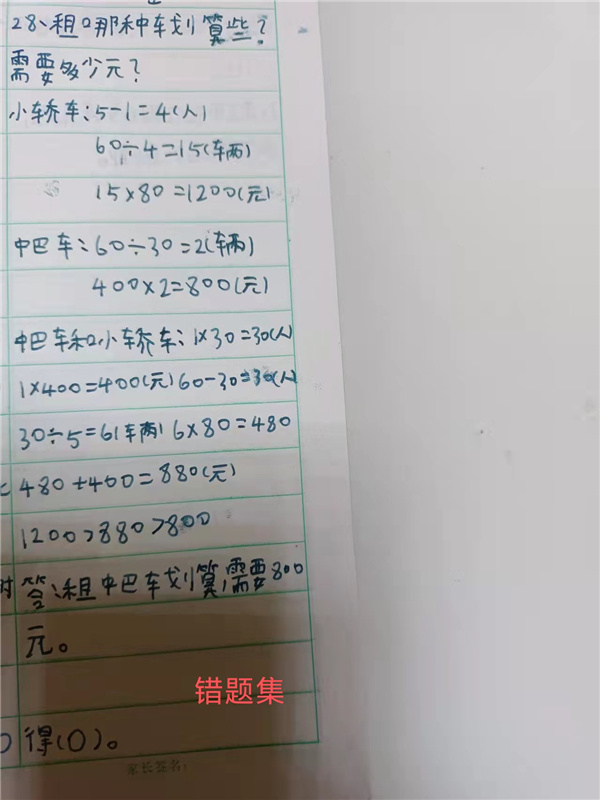 28、租哪种车划算些?
需要多少元?
小轿车:5-1=4(人)
60÷4=15(车两)
15×80=1200(元)
中巴车:60÷30=2(车两)
400×2=800(元)
中巴车和小轿车:1×30=30(人)
1×400=400(元) 60-30=30(人)
30÷5=6(车两) 6×80=480
480+400=880(元)
1200>880>800
时 答:租中巴车划算,需要800
元。
错题集
得(0)。
家长签名: